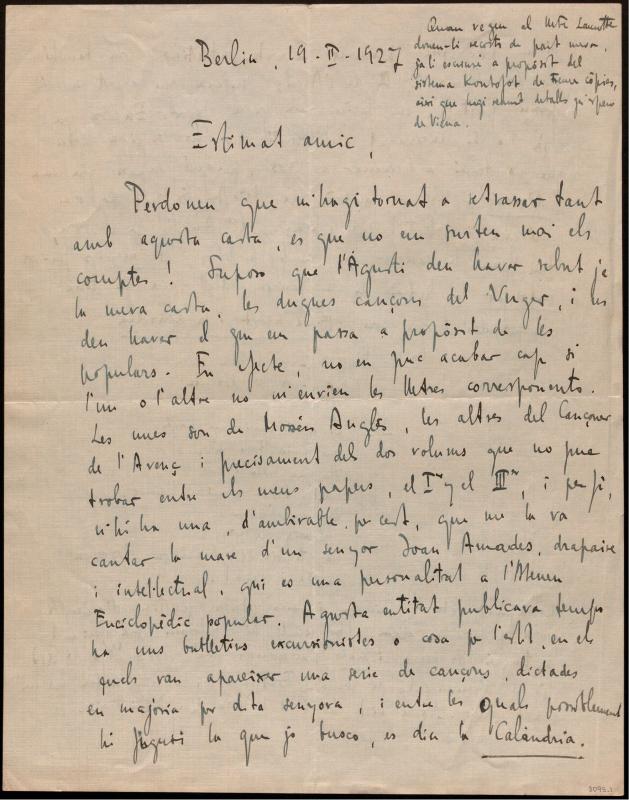 Berlin, 19-II-1927
Quan vegeu el Mtre Lamotte
doneu-li records de part meva,
ja li escriuré a propòsit del
sistema Kontofot de treure còpies,
així que hagi rebut detalls qu'espero
de Viena.
Estimat amic,
Perdoneu que m'hagi tornat a retrassar tant
amb aquesta carta, es que no em surten mai els
comptes! Suposo que l'Agustí deu haver rebut ja
la meva carta, les dugues cançons del Verger, i us
deu haver dit el que em passa a propòsit de les
populars. En efecte, no en puc acabar cap si
l'un o l'altre no m'envien les lletres corresponents.
Les unes son de Mossén Anglès, les altres del Cançoner
de l'Avenç i precisament dels dos volums que no puc
trobar entre els meus papers, el I er y el III er, i per fi,
n'hi ha una, d'ambirable, per cert, que me la va
cantar la mare d'un senyor Joan Amades, drapaire
i intel·lectual, qui es una personalitat a l'Ateneu
Enciclopèdic popular. Aquesta entitat publicava temps
ha uns butlletins excursionistes o cosa per l'estil, en els
quels van apareixer una serie de cançons, dictades
en majoria per dita senyora, i entre les quals possiblement
hi figuri la que jo busco, es diu la Calàndria.
3095.1